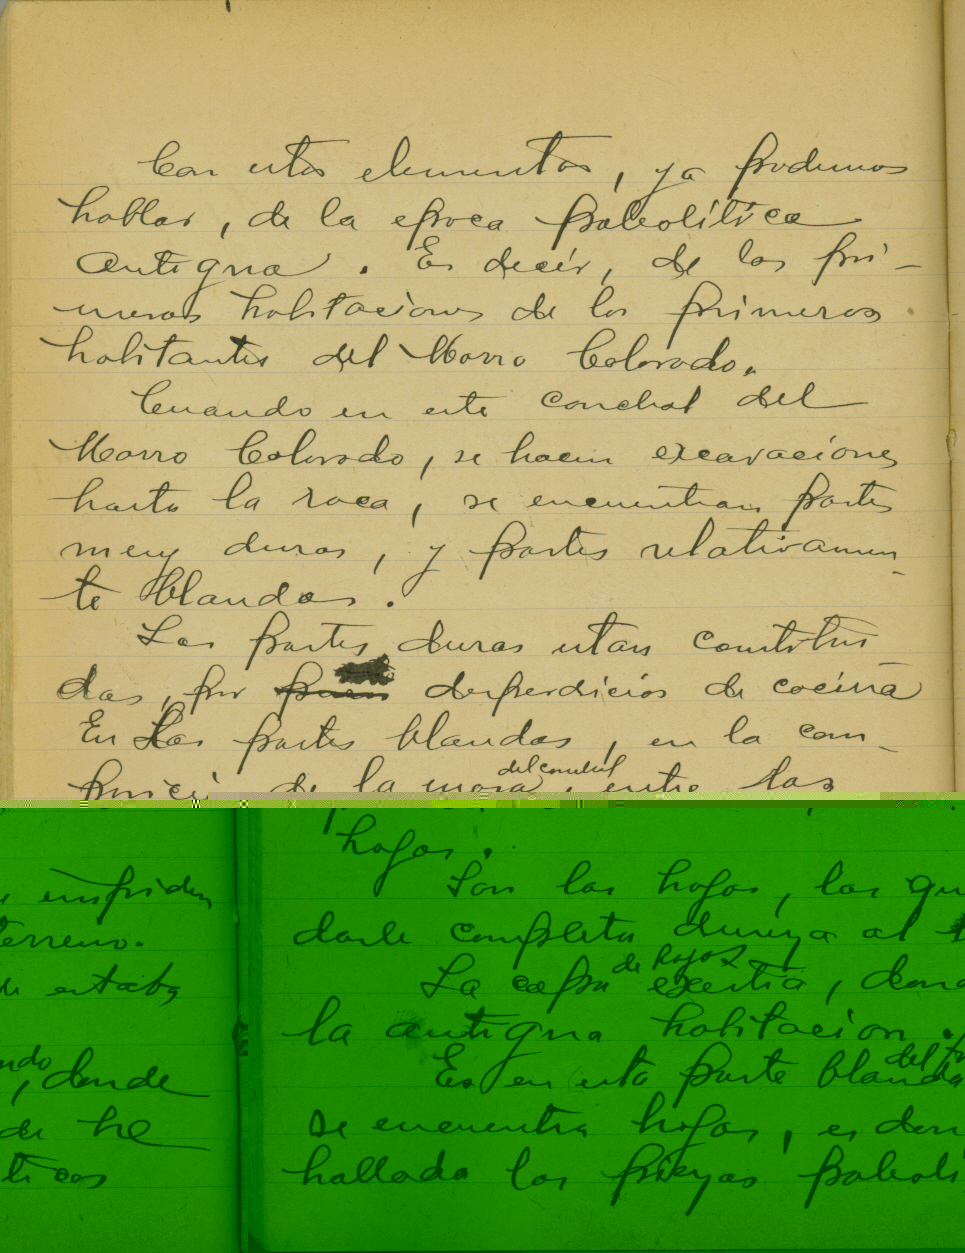 Con estos elementos, ya podemos
hablar, de la epoca paleolitica
antigua. Es decir, de las pri-
meras habitaciones de los primeros
habitantes del Morro Colorado.
Cuando en este conchal del
Morro Colorado, se hacen excavaciones
hasta la roca, se encuentran partes
muy duras, y partes relativamen-
te blandas.
Las partes duras estan constitui
das, por desperdicios de cocina
En las partes blandas, en la com-
del conchal
de la entre las
hojas.
Son las hojas, las qu
darle completa dureza al
de hojas
La capa existia, don
la antigua habitacion.
Es en esta parte blanda del
se encuentra hojas, es don
hallado las piezas paleoli
impiden
terreno.
estaba
ndo, donde
de he
ticos